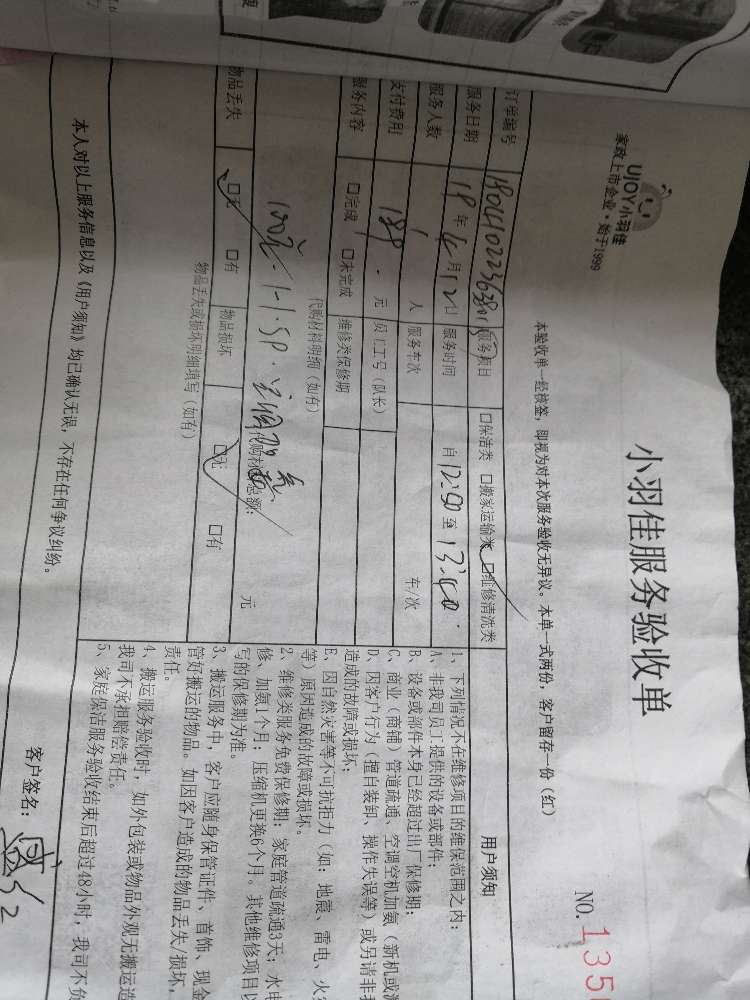 UJOY小羽佳
家政上市企业·始于1999
小羽佳服务验收单
NO. 135
本验收单一经核签，即视为对本次服务验收无异议。本单一式两份，客户留存一份（红）
订单编号
服务项目 口保洁类 口搬家运输类 口维修清洗类
服务日期 18年4月12日 服务时间 自12:50至13:40
服务人数 1人 服务车次 车/次
支付费用 189.元 员工工号（队长）
服务内容 口完成 口未完成 维修类保修期
代购材料明细（如有）
100元.1-1.5P.空调加氨
代购材料总额： 元
物品丢失 口无 口有 物品损坏 口无 口有
物品丢失或损坏明细填写（如有）
用户须知
1、下列情况不在维修项目的维保范围之内：
A、非我司员工提供的设备或部件；
B、设备或部件本身已经超过出厂保修期；
C、商业（商铺）管道疏通、空调空机加氨（新机或
D、因客户行为（擅自装卸、操作失误等）或另请非
造成的故障或损坏；
E、因自然灾害等不可抗拒力（如：地震、雷电、火
等）原因造成的故障或损坏。
2、维修类服务免费保修期：家庭管道疏通3天；水
修、加氨1个月；压缩机更换6个月。其他维修项目以
写的保修期为准。
3、搬运服务中，客户应随身保管证件、首饰、现金
管好搬运的物品。如因客户造成的物品丢失/损坏，
责任。
4、搬运服务验收时，如外包装或物品外观无搬运造
我司不承担赔偿责任。
5、家庭保洁服务验收结束后超过48小时，我司不负
本人对以上服务信息以及《用户须知》均已确认无误，不存在任何争议纠纷。
客户签名：